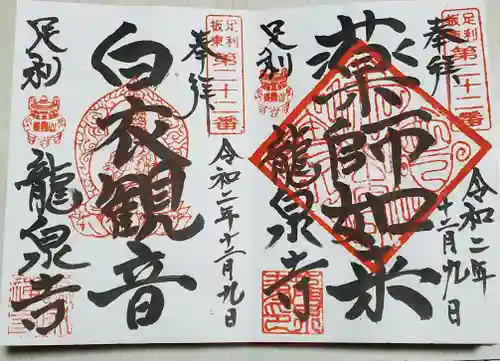 足利坂東
第二十二番
奉拝
薬師如来
令和二年
十二月九日
足利
龍泉寺
足利坂東
第二十一番
奉拝
白衣観音
令和二年十二月九日
足利
龍泉寺